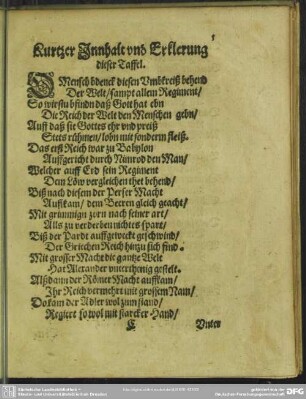 Kurtzer Innhalt vnd Erklerung
dieser Taffel.
O Mensch bdenck diesen Vmbkreiß behend
Der Welt/ sampt allem Regiment/
So wirstu bfindn daß Gott hat ebn
Die Reich der Welt den Menschen gebn/
Auff daß sie Gottes ehr vnd preiß
Stets rühmen/ lobn mit sonderm fleiß.
Das erst Reich war zu Babylon
Auffgericht durch Nimrod den Man/
Welcher auff Erd sein Regiment
Dem Löw vergleichen thet behend/
Biß nach diesem der Perser Macht
Auffkam/ dem Beeren gleich geacht/
Mit grimmign zorn nach seiner art/
Alls zu verderben nichtes spart/
Biß der Pardt auffgeweckt geschwind/
Der Griechen Reich hinzu sich find.
Mit grosser Macht die gantze Welt
Hat Alexander vnterthenig gestelt.
Alßdann der Römer Macht auffkam/
Ihr Reich vermehrt mit grossem Nam/
Do kam der Adler wol zum stand/
Regiert so wol mit starcker Hand/
Vnten